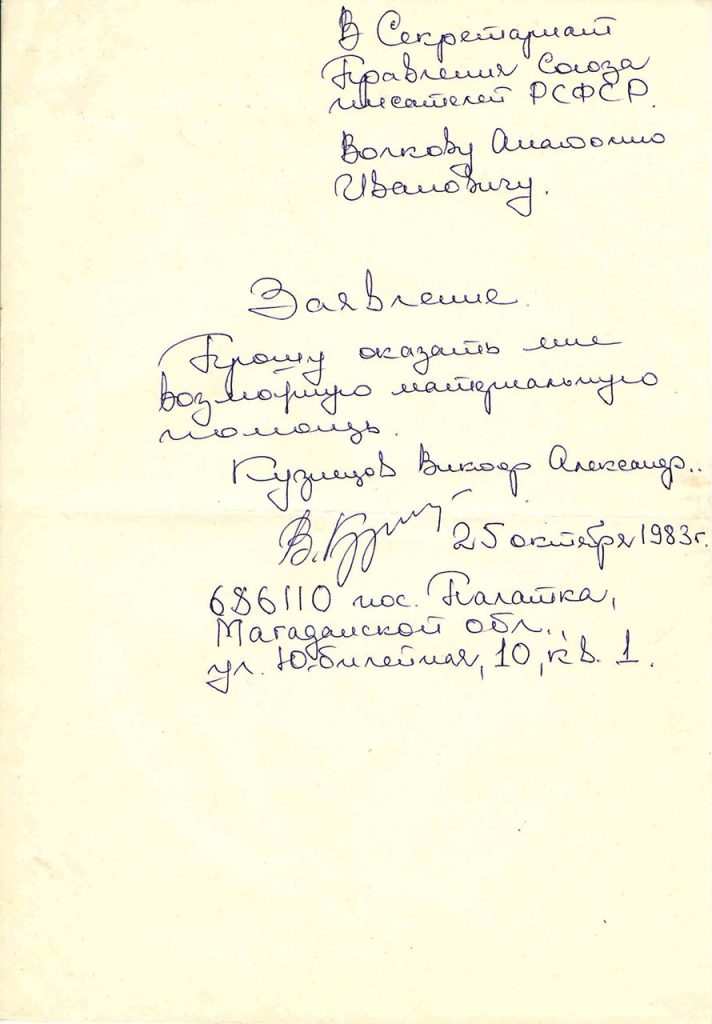 В Секретариат
Правления Союза
писателей РСФСР.
Волкову Анатолию
Ивановичу.
Заявление.
Прошу оказать мне
возможную материальную
помощь.
Кузнецов Виктор Александр..
В. Кузнец
25 октября 1983 г.
686110 пос. Палатка,
Магаданской обл.,
ул. Юбилейная, 10, кв. 1.